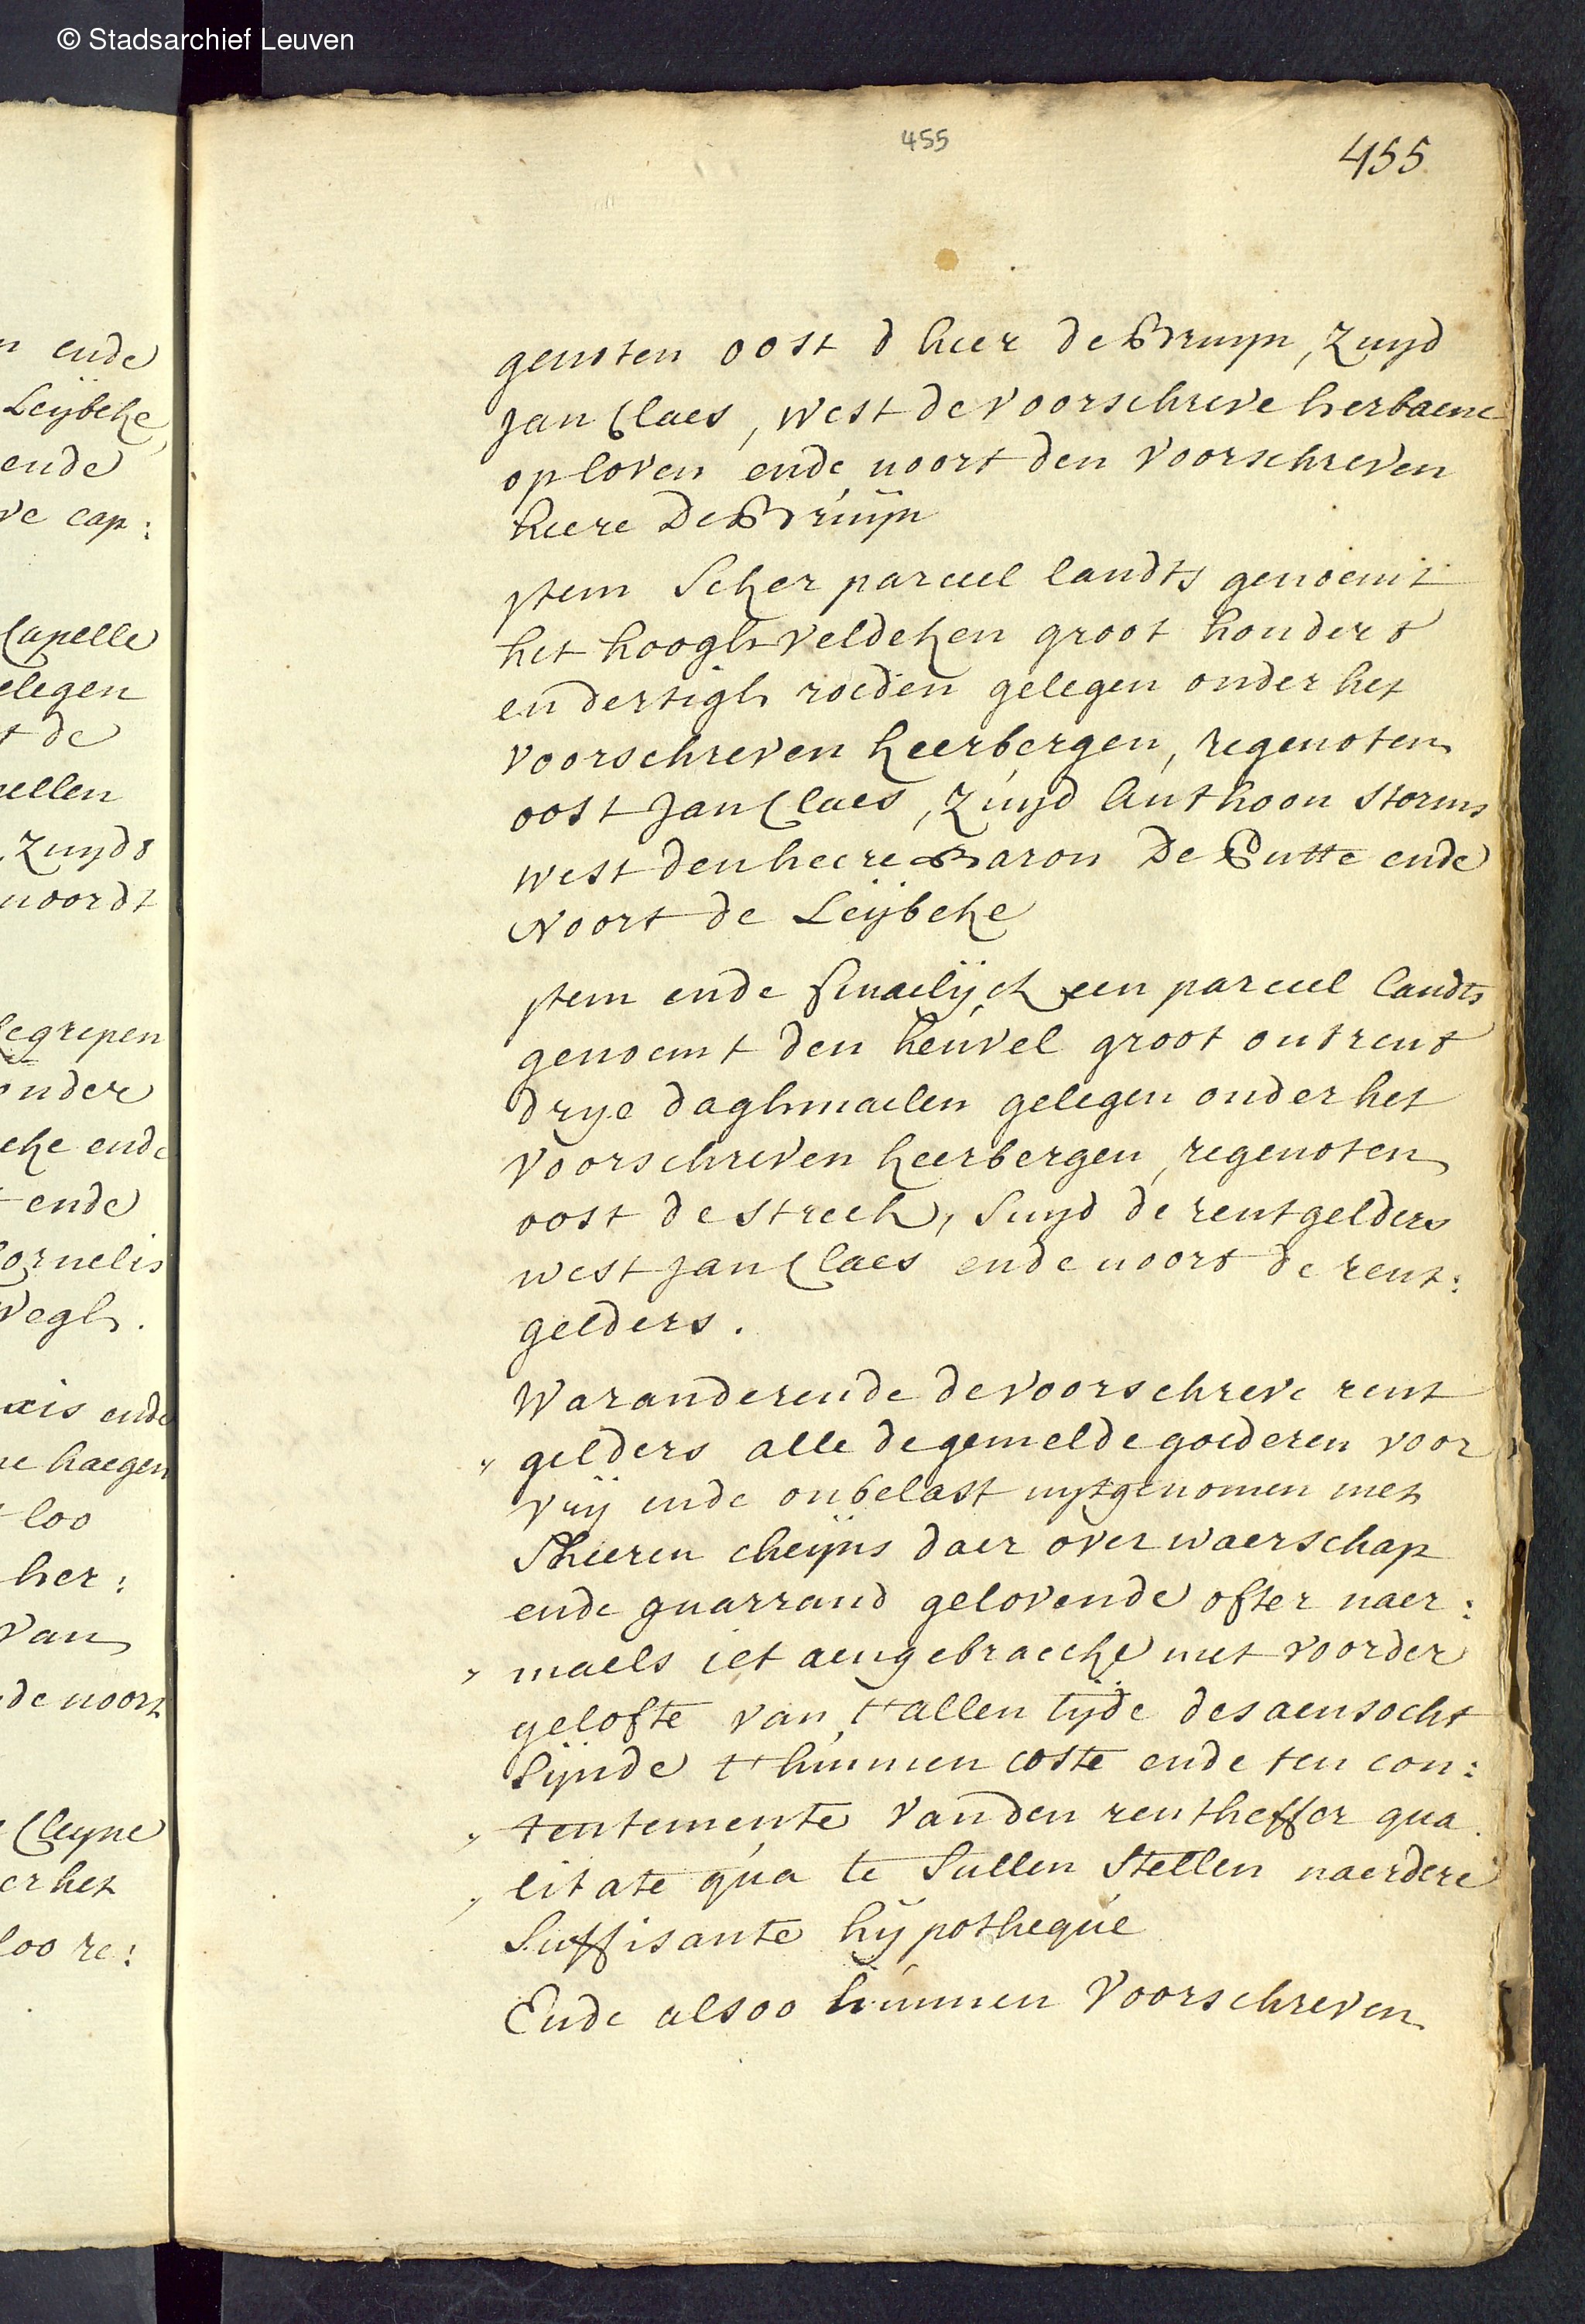 © Stadsarchief Leuven
455
455
n ende
Leijbeke,
ende
ve cap:
Capelle
elegen
t de
pellen
Zuyds
noordt
begrepen
onder
eke ende
ende
Cornelis
Wegh.
ende
ne haegen
loo
her:
van
de noort
Cleyne
er het
loo re:
genoten oost d heer de Bruyn, Zuyd
Jan Claes, west de voorschreve herbaene
op loven ende noort den voorschreven
heere De Bruijn
Item Seker parceel landts genoemt
het hoogh veldeken groot hondert
en dertigh roeden gelegen onder het
voorschreven heerbergen, regenoten
oost Jan Claes, Zuyd Anthoon Storms
west den heere Baron De Putte ende
Noort de Leijbeke
Item ende finaelijck een parceel landts
genoemt den heuvel groot ontrent
drye daghmaelen gelegen onder het
voorschreven heerbergen, regenoten
oost de streek, Suyd de rentgelders
west Jan Claes ende noort de rent:
gelders.
Waranderende de voorschreve rent
gelders alle de gemelde goederen voor
vrij ende onbelast uytgenomen met
Sheeren cheyns daer over waerschap
ende guarrand gelovende ofter naer:
maels iet aengebraecke met voorder
gelofte van t'allen tijde des aensocht
Sijnde t'hunnen coste ende ten con:
tentemente van den rentheffer qua
litate qua te Sullen Stellen naerdere
Suffisante hijpotheque
Ende alsoo hunnen voorschreven